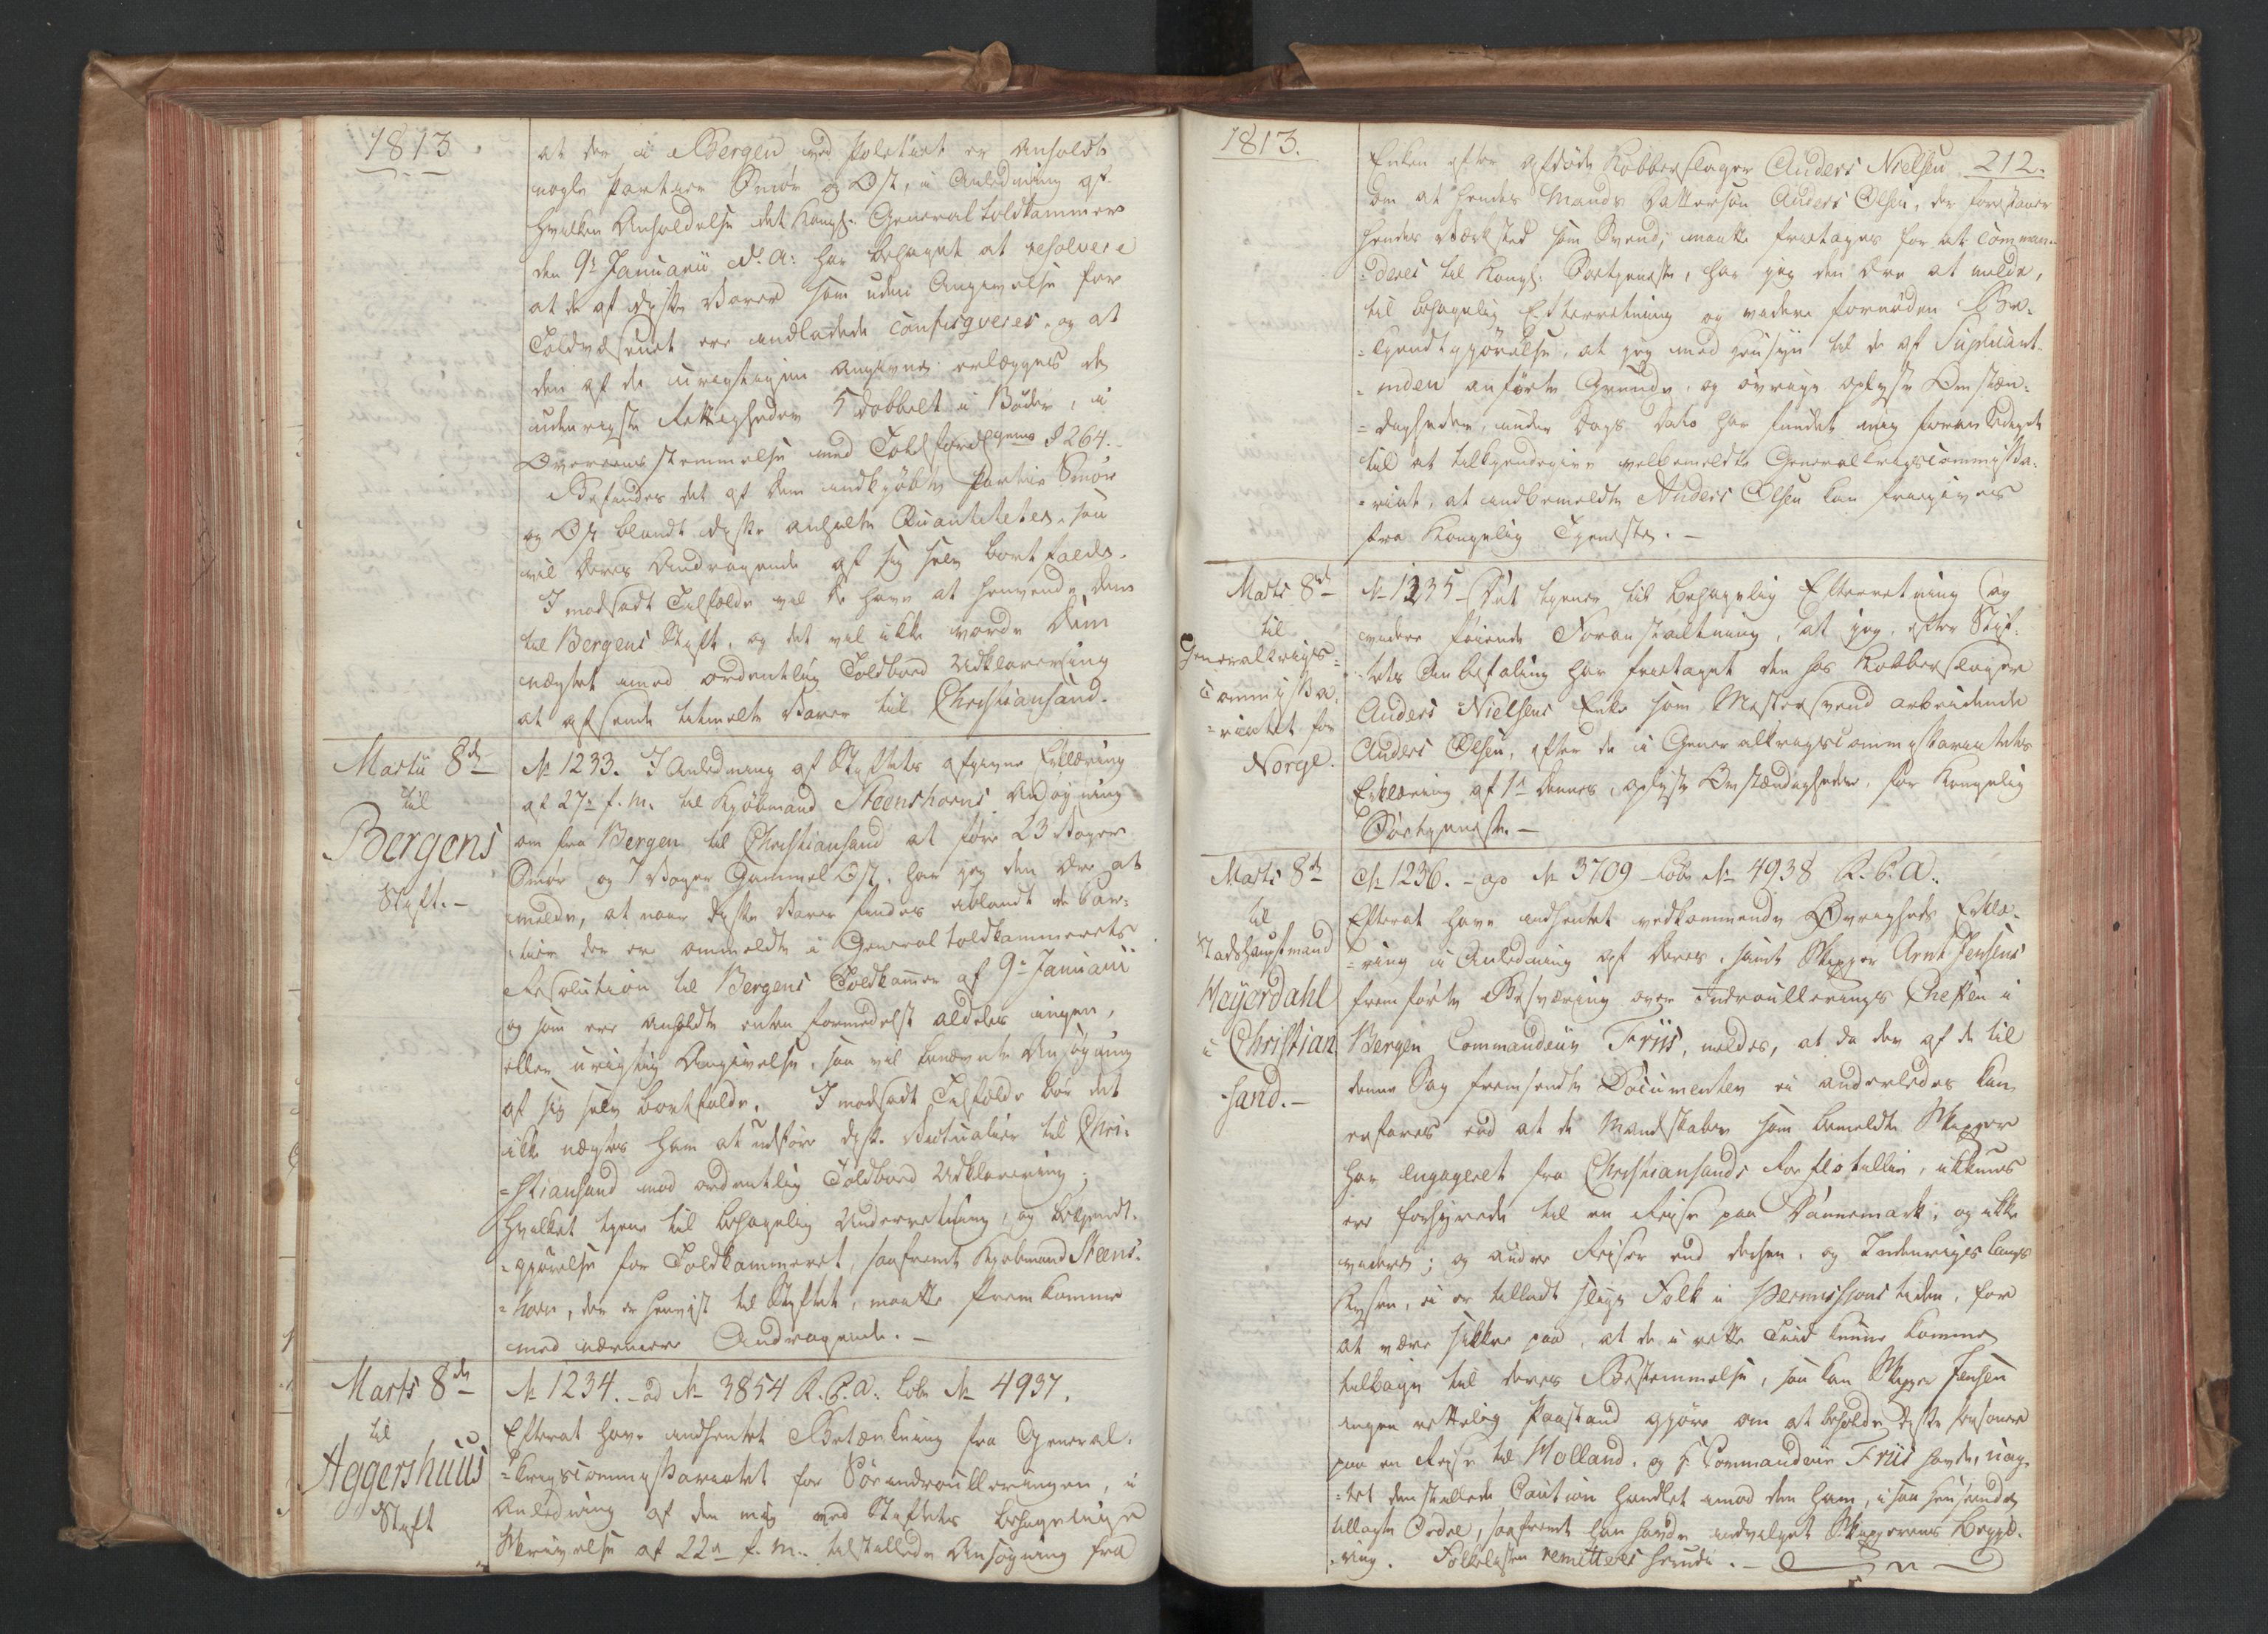 1813.
at der i Bergen ved Politiet er anholdt
nogle Partier Smør og Ost, i Anledning af
hvilken Anholdelse det Kongl: General Toldkammer
den 9de Januarii d. A: har behaget at resolvere
at de af disse Varer som uden Angivelse for
Toldvæsenet ere indladede confisqveres, og at
den af de urigtigen angivne erlægges de
udenrigske Rettigheder 5 dobbelt i Bøder, i
Overeensstemmelse med Toldforordgens § 264.
Befindes det af Dem indkjøbte Partie Smør
og Ost blandt disse anholte Quantiteter, saa
vil Deres Andragende af sig selv bortfalde.
I modsadt Tilfælde vil De have at henvende Dem
til Bergens Stift, og det vil ikke vorde Dem
nægtet imod ordentlig Toldbod Udklarering
at afsende titmelte Varer til Christiansand.
Martii 8de
til
Bergens
Stift.-
No 1233. I Anledning af Stiftets afgivne Erklæring
af 27de f. M. til Kjøbmand Steenshorns Ansøgning
om fra Bergen til Christiansand at føre 23 Voger
Smør og 7 Voger Gammel Ost, har jeg den Ære at
melde, at naar disse Varer findes iblandt de Par-
tier der er ommeldte i General Toldkammerets
Resolution til Bergens Toldkamer af 9de Januarii
og som ere anholdte enten formedelst aldeles ingen,
eller urigtig Angivelse, saa vil benævnte Ansøgning
af sig selv bortfalde. I modsadt Tilfælde bør det
ikke nægtes ham at udføre disse Victualier til Chri-
=stiansand mod ordentlig Toldbod Udklarering;
hvilket tjene til behagelig Underretning, og bekjendt-
=gjørelse for Toldkammeret, saafremt Kjøbmand Steens-
=horn, der er henvist til Stiftet, maatte fremkomme
med nærmere Andragende.-
Marts 8de
til
Aggershuus
Stift
No 1234. - ad No 3854 R. C. A: Løbe No 4937.
Efterat have indhentet Betænkning fra General-
=krigscommissariatet for Søeindroulleringen, i
Anledning af den mig ved Stiftets behagelige
Skrivelse af 22de f. M. tilstillede Ansøgning fra
1813.
212.
Enken efter afdøde Kobberslager Anders Nielsen
om at hendes Mands Dattersøn Anders Olsen, der forestaaer
hendes Værksted som Svend, maatte fritages for at comman-
=deres til Kongl: Søetjeneste, har jeg den Ære at melde,
til behagelig Efterretning og videre fornøden Be-
=kjendtgjørelse, at jeg med Hensyn til de af Suplicant-
=inden anførte Grunde, og øvrige oplyste Omstæn-
=digheder, under Dags Dato har fundet mig foranlediget
til at tilkjendegive velbemeldte Generalkrigscommissa-
=riat, at indbemeldte Anders Olsen kan friegives
fra Kongelig Tjeneste.-
Marts 8de
til
Generalkrigs=
Commissa-
=riatet for
Norge.
No 1235 - Det tjener til behagelig Efterretning og
videre føiende Foranstaltning, at jeg, efter Stif-
=tets Anbefaling har frietaget den hos Kobberslager
Anders Nielsens Enke som Mestersvend arbeidende
Anders Olsen, efter de i Generalkrigscommissariatets
Erklæring af 1ste dennes, oplyste Omstændigheder, for Kongelig
Søetjeneste.-
Marts 8de
til
Stadshauptmand
Heyerdahl
i Christian
=sand.-
No 1236. - ad No 3709 - Løbe No 4938 R. C. A.
Efterat have indhentet vedkommende Øvrigheds Erklæ-
=ring i Anledning af Deres, samt Skipper Arnt Jensens
fremførte Besværing over Indroullerings Cheffen i
Bergen Commandeur Friis, meldes, at da der af de til
denne Sag fremsendte Documenter ei anderledes kan
erfares end at de Mandskaber som bemeldte Skipper
har engageret fra Christiansands Roe flotille, ikkuns
ere forhyrede til en Reise paa Dannemark, og ikke
videre; og andre Reiser end dertil, og Indenrigs langs
Kysten, ei er tilladt slige Folk i Permissions tiden, for
at være sikker paa, at de i rette Tiid kunne komme
tilbage til deres Bestemmelse, saa kan Skipper Jensen
ingen rettelig Paastand gjøre om at beholde disse Personer
paa en Reise til Holland, og H Commandeur Friis havde, uag-
=tet den stillede Caution handlet imod den ham, i saa Henseende
tillagte Ordre, saafremt han havde indvilget Skipperens Begjæ-
=ring. Folkelisten remitteres herved.-